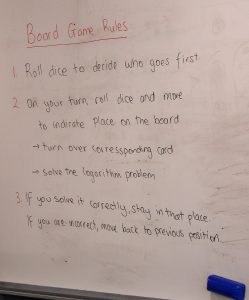 Board Game Rules
1. Roll dice to decide who goes first
2. On your turn, roll dice and move
to indicate place on the board
→ turn over corressponding card
→ solve the logarithm problem
3. If you solve it correctly, stay in that place.
If you are incorrect, move back to previous position.